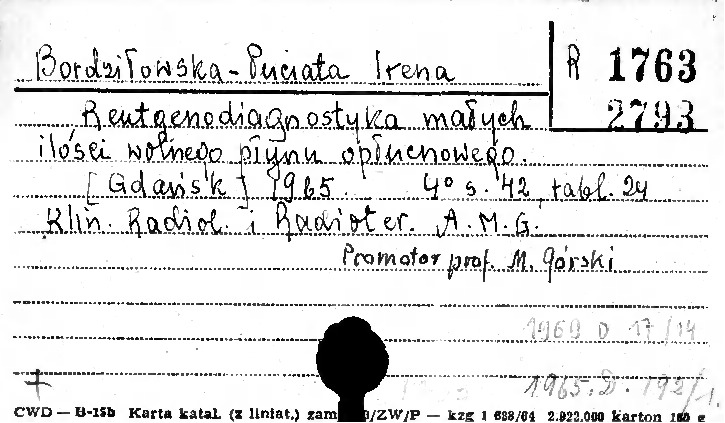 Bordziłowska-Puciata Irena
R 1763
2793
Rentgenodiagnostyka małych
ilości wolnego płynu opłucnowego.
[Gdańsk] 1965. 4° s. 42, tabl. 24
Klin. Radiol. i Radioter. A.M.G.
Promotor prof. M. Górski
1969 D 17/14
1965.D.192/1.
CWD — B-15b Karta katal. (z liniat.) zam /ZW/P — kzg 1 688/64 2.922.000 karton g